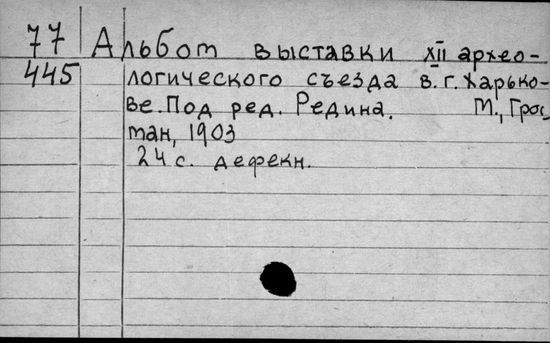 77 Альбом выставки XII архео-
445 логического съезда в.г. Харько-
ве. Под ред. Редина. М., Грос
ман, 1903
24 с. дефекн.